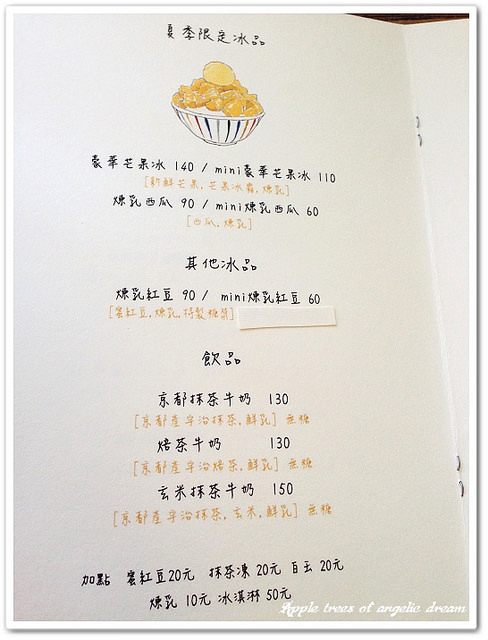 夏季限定冰品
豪華芒果冰 140 / mini豪華芒果冰 110
[新鮮芒果, 芒果冰霜, 煉乳]
煉乳西瓜 90 / mini煉乳西瓜 60
[西瓜, 煉乳]
其他冰品
煉乳紅豆 90 / mini煉乳紅豆 60
[蜜紅豆, 煉乳, 特製糖漿]
飲品
京都抹茶牛奶 130
[京都產宇治抹茶, 鮮乳] 無糖
焙茶牛奶 130
[京都產宇治焙茶, 鮮乳] 無糖
玄米抹茶牛奶 150
[京都產宇治抹茶, 玄米, 鮮乳] 無糖
加點 蜜紅豆20元 抹茶凍 20元 白玉 20元
煉乳 10元 冰淇淋 50元
Apple trees of angelic dream